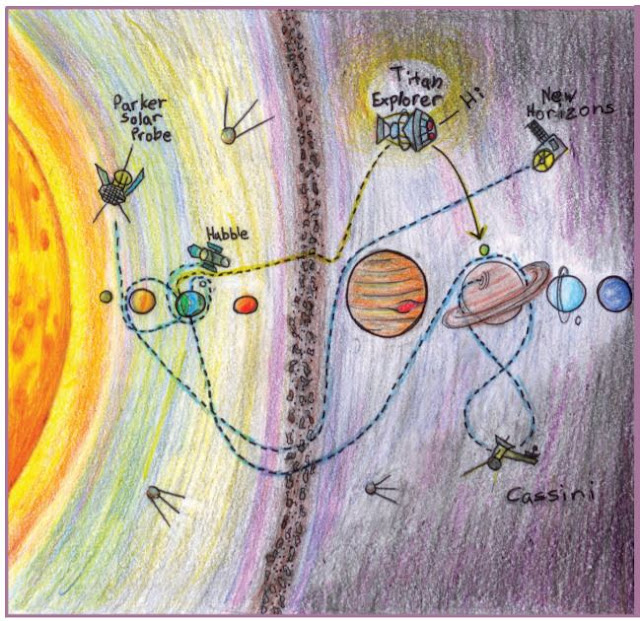 Titan
Explorer
Hi
New
Horizons
Parker
Solar
Probe
Habble
Cassini